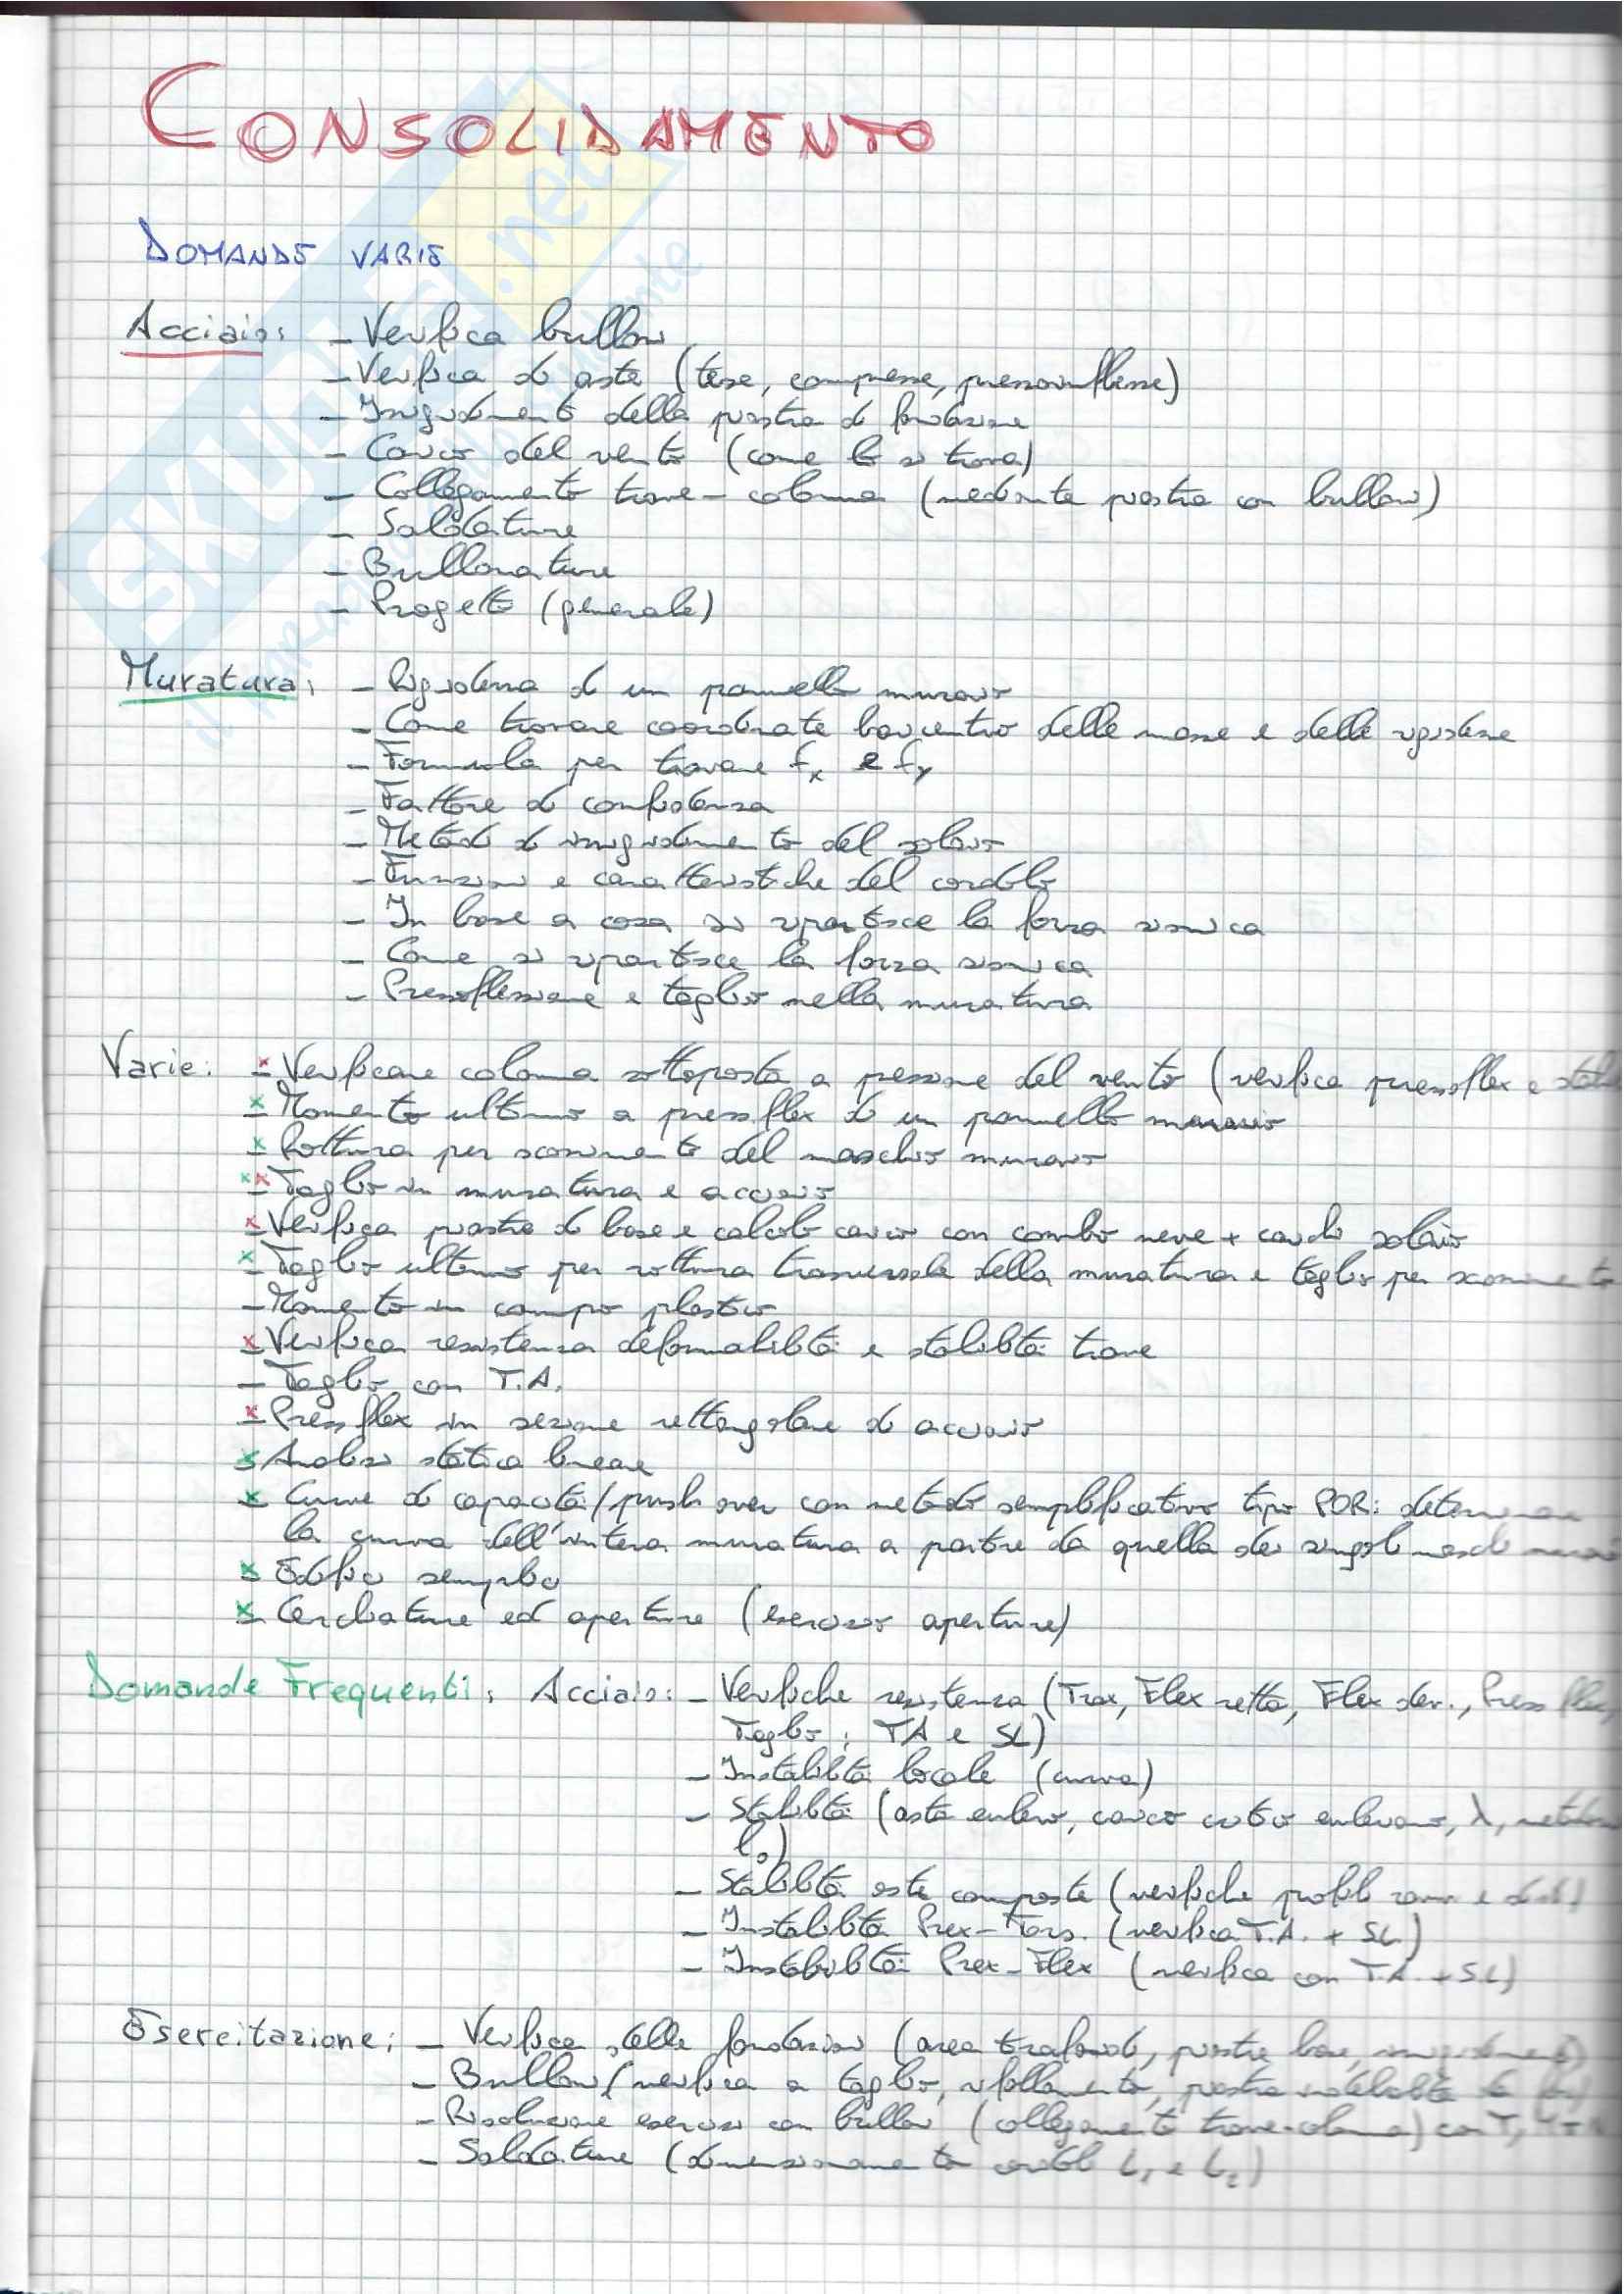 CONSOLIDAMENTO
DOMANDE VARIE
Acciaio: - Verifica bulloni
- Verifica di aste (tese, compresse, pressoinflesse)
- Irrigidimenti della piastra di fondazione
- Carico del vento (come lo si trova)
- Collegamento trave - colonna (mediante piastra con bulloni)
- Saldature
- Bullonature
- Progetto (generale)
Muratura: - Rigidezza di un pannello murario
- Come trovare coordinate baricentro delle masse e delle rigidezze
- Formula per trovare fx e fy
- Fattore di confidenza
- Metodi di irrigidimento del solaio
- Funzioni e caratteristiche del cordolo
- In base a cosa si ripartisce la forza sismica
- Come si ripartisce la forza sismica
- Pressoflessione e taglio nella muratura
Varie: - Verificare colonna sottoposta a pressione del vento (verifica pressoflex e
- Momento ultimo a pressflex di un pannello murario
- Rottura per scorrimento del maschio murario
- Taglio in muratura e acciaio
- Verifica piastra di base e calcolo carico con combo neve + carichi solaio
- Taglio ultimo per rottura trasversale della muratura e taglio per scorrimento
- Momento in campo plastico
- Verifica resistenza deformabilità e stabilità trave
- Taglio con T.A.
- Pressflex in sezione rettangolare di acciaio
- Analisi statica lineare
- Curve di capacità/push over con metodo semplificativo tipo POR:
la curva dell'intera muratura a partire da quella dei singoli maschi
- Edifici semplici
- Cerchiature ed aperture (esercizio aperture)
Domande Frequenti: Acciaio: - Verifiche resistenza (Trax, Flex retta, Flex dev., Press flex,
Taglio; TA e SL)
- Instabilità locale (curva)
- Stabilità (asta eulero, carico critico euleriano, λ,
l₀)
- Stabilità aste composte (verifiche profili
- Instabilità Flex-Tors. (verifica T.A. + SL)
- Instabilità Prex-Flex (verifica con T.A. + SL)
Esercitazione: - Verifica delle fondazioni (area tirafondi, piastra base, irrigidimenti)
- Bulloni (verifica a taglio, rifollamento, piastra
- Risoluzione esercizi con bulloni (collegamento trave-colonna) con T,
- Saldature (dimensionamento cordoli L₁ e L₂)